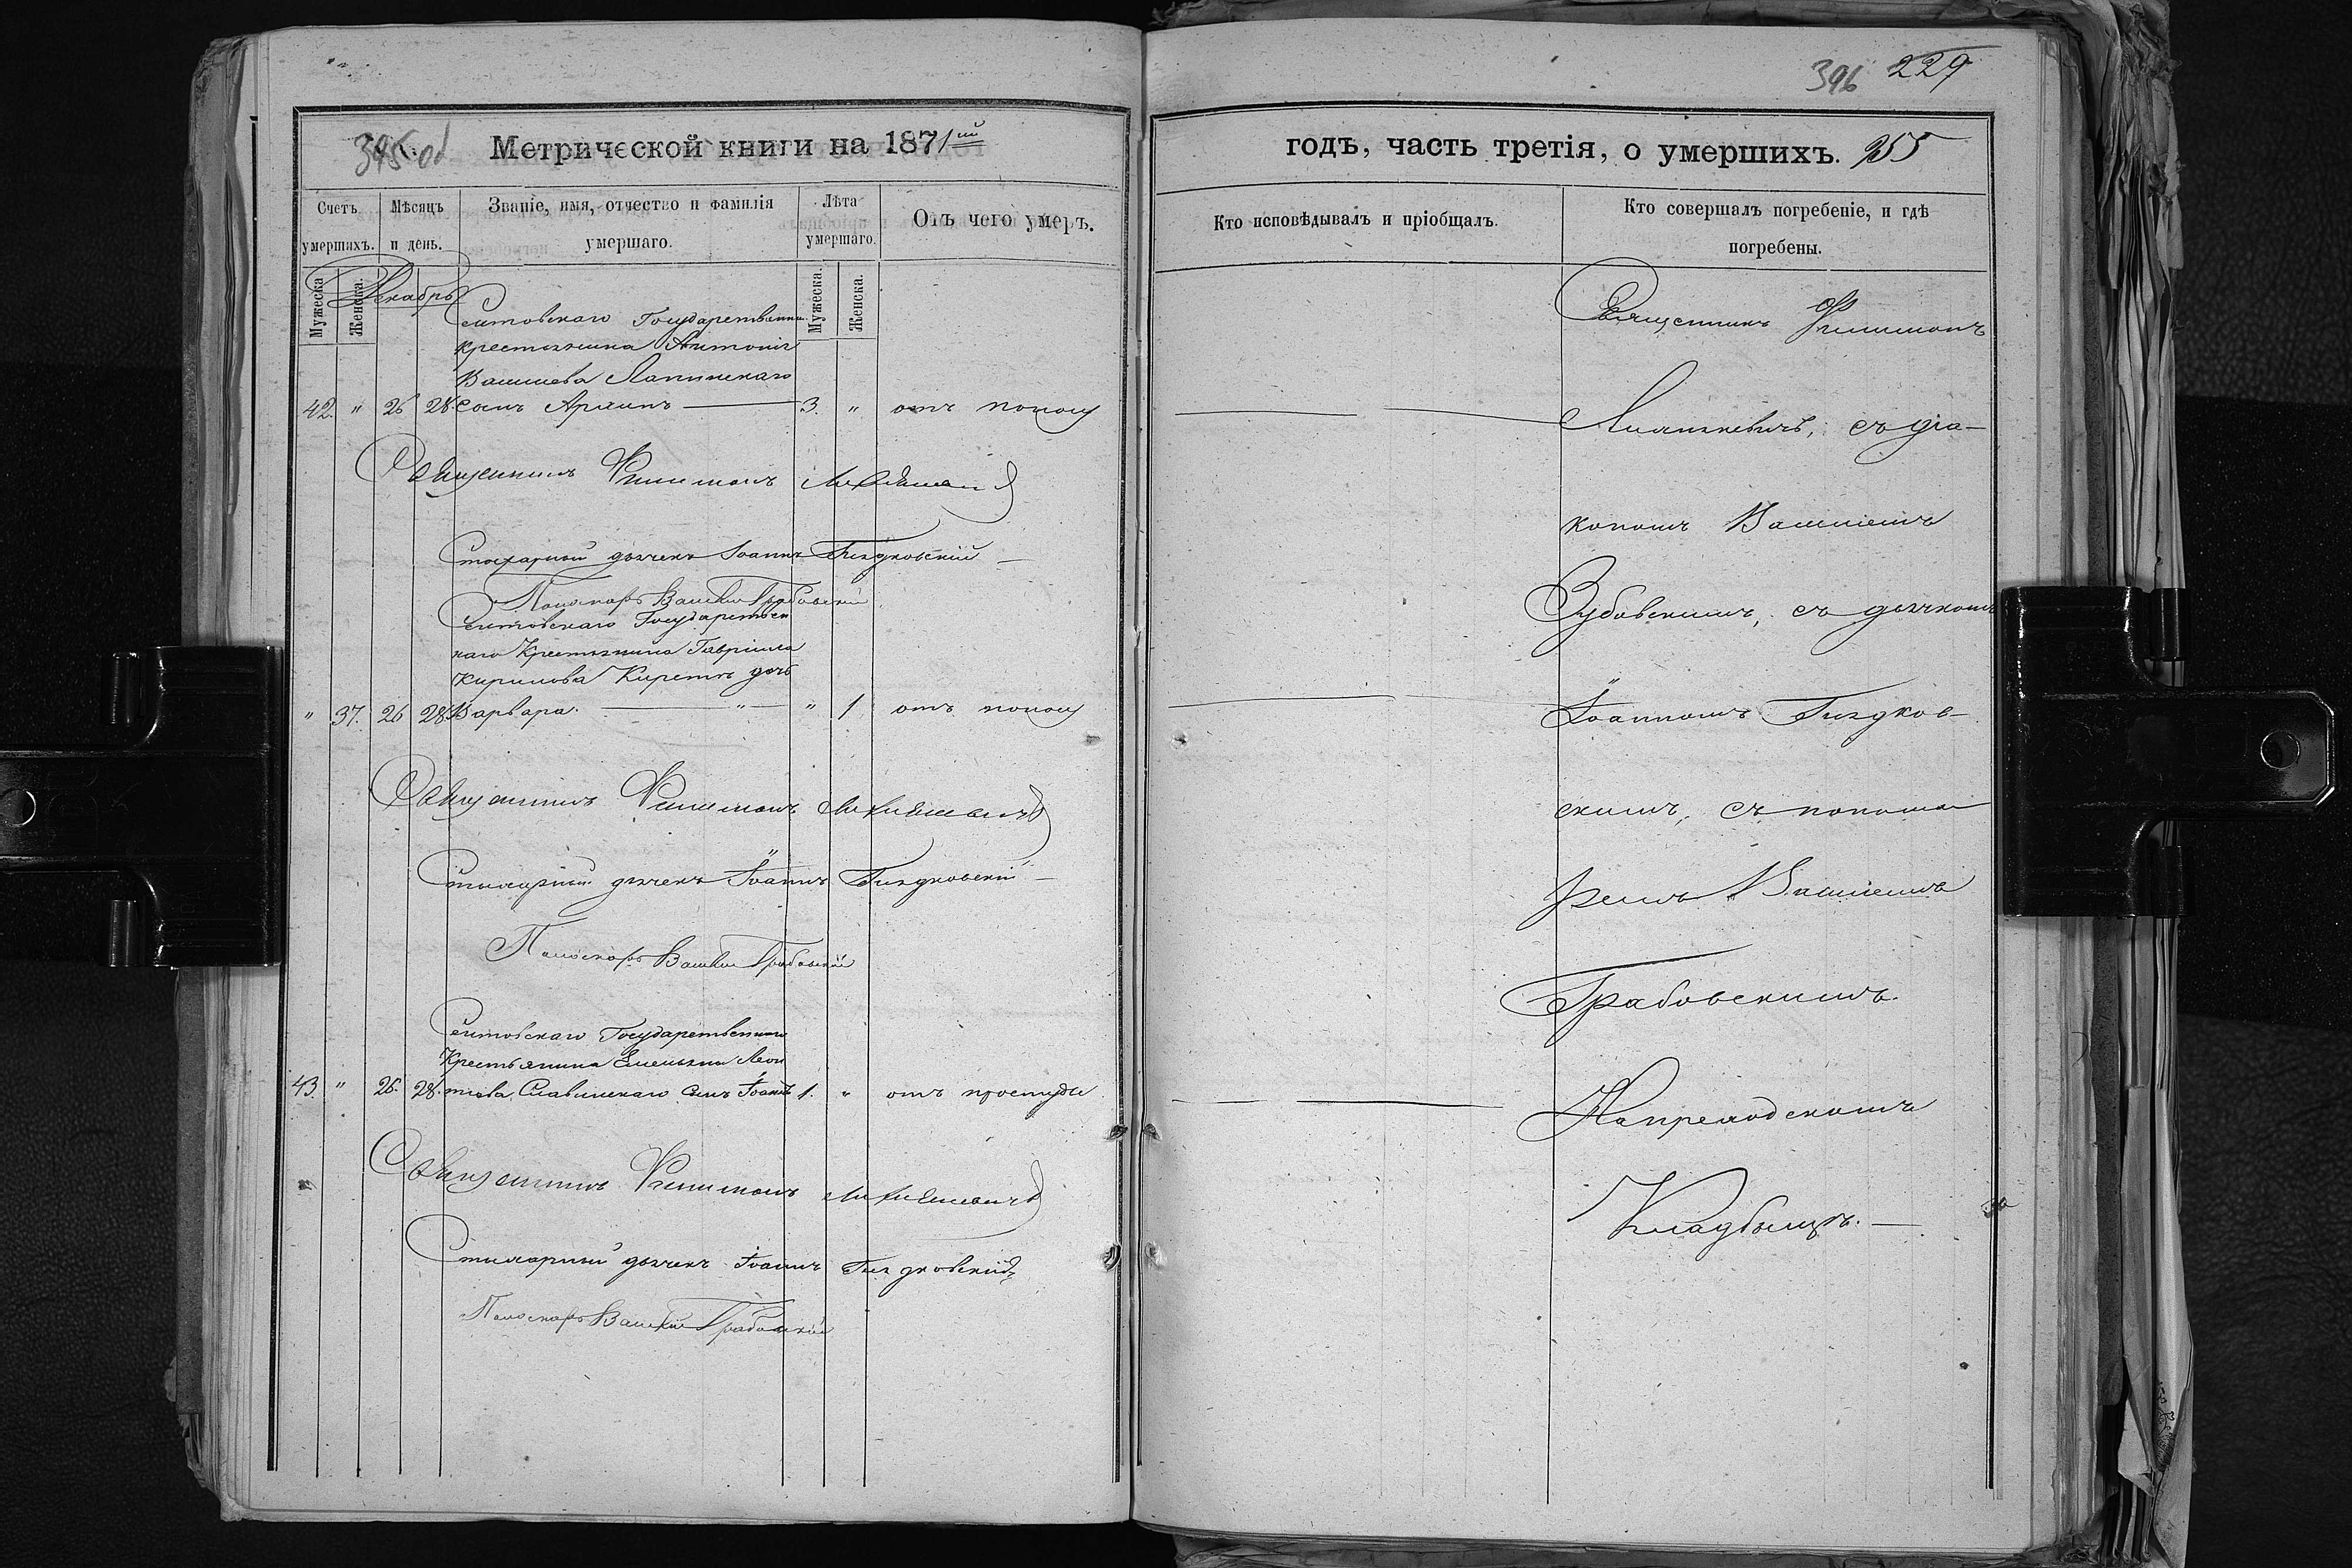 395 об
Метрической книги на 1871ый
Счетъ умершихъ.
Мѣсяцъ и день.
Званіе, имя, отчество и фамилія умершаго.
Лѣта умершаго.
Отъ чего умеръ.
Мужеска
Женска.
Мужеска.
Женска.
Декабрь
Сеитовскаго Государственн.
крестьянина Антонія
Василіева Лапинскаго
42. " 26 28. сынъ Архипъ — 3. " отъ поносу
Священникъ Филимонъ
Стихарный дьячекъ Іоаннъ Гиздковскій
Пономарь Василій Грабовскій
Сеитовскаго Государствен
наго Крестьянина Гавріила
Кирилова дочь
" 37. 26 28 Варвара. — " — " 1 отъ поносу
Священникъ Филимонъ
Стихарный дьячекъ Іоаннъ Гиздковскій
Пономарь Василій Грабовскій
Сеитовскаго Государственнаго
Крестьянина Емельяна Леон
43. " 26. 28. тіева Славинскаго сынъ Іоаннъ 1. " отъ простуды
Священникъ Филимонъ
Стихарный дьячекъ Іоаннъ Гиздковскій
Пономарь Василій Грабовскій
396 229
годъ, часть третія, о умершихъ. 255
Кто исповѣдывалъ и пріобщалъ.
Кто совершалъ погребеніе, и гдѣ погребены.
Священникъ Филимонъ
съ діа-
кономъ Василіемъ
Зубовскимъ, съ дьячкомъ
Іоанномъ Гиздков-
скимъ, съ понома
ремъ Василіемъ
Грабовскимъ.
На приходскомъ
Кладбищѣ. —